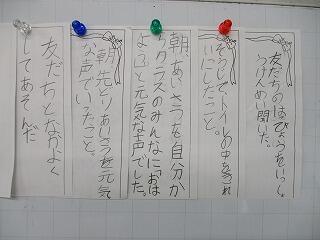 友だちのはぴょうをいっしょ
うけんめい聞いた。
そうじでトイレの中をきれ
いにしたこと。
朝、あいさつも自分か
らクラスのみんなに「おは
よう」と元気な声でした。
朝先とりあいさつを元気
な声でいったこと。
友だちとなかよく
してあそんだ